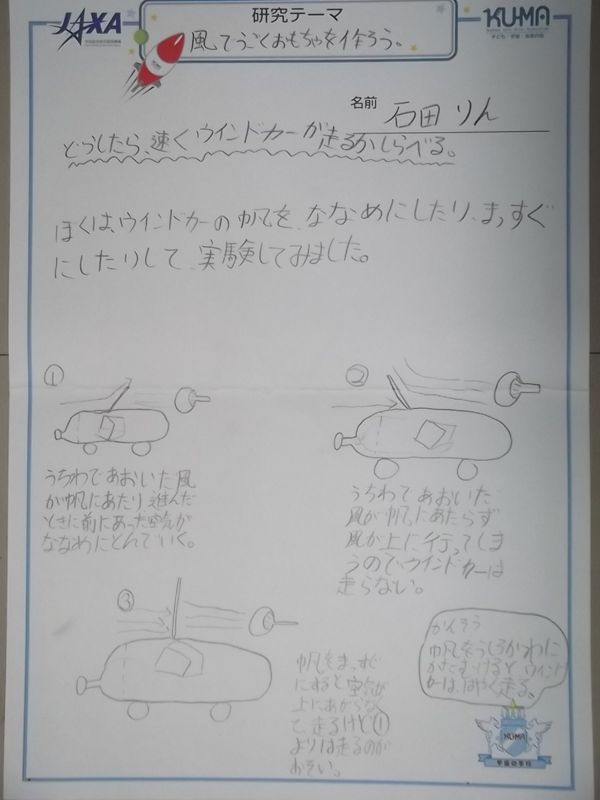 JAXA
研究テーマ
KUMA
風でうごくおもちゃを作ろう。
名前 石田 りん
どうしたら、速くウインドカーが走るかしらべる。
ぼくは、ウインドカーの帆を、ななめにしたり、まっすぐ
にしたりして、実験してみました。
①
うちわであおいだ風
が帆にあたり進んだ
ときに前にあった空気が
ななめにとんでいく。
②
うちわであおいだ
風が帆にあたらず
風が上に行ってしま
うのでウインドカーは
走らない。
③
帆をまっすぐ
にすると空気が
上にあがらなく
て走るけど①
よりは走るのが
おそい。
かんそう
帆をうしろがわに
かたむけるとウインド
カーは、はやく走る。
KUMA